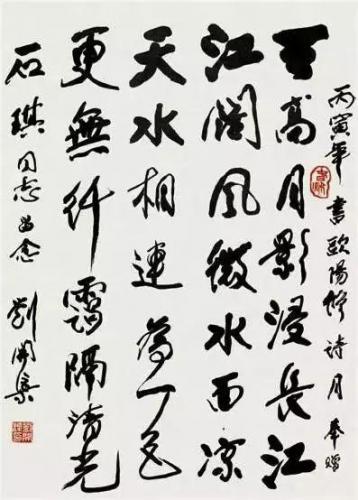 丙寅年 書歐陽修詩月 奉贈
天高月影浸長江
江闊風微水面涼
天水相連為一色
更無纤靄隔清光
石琪同志留念 劉開渠